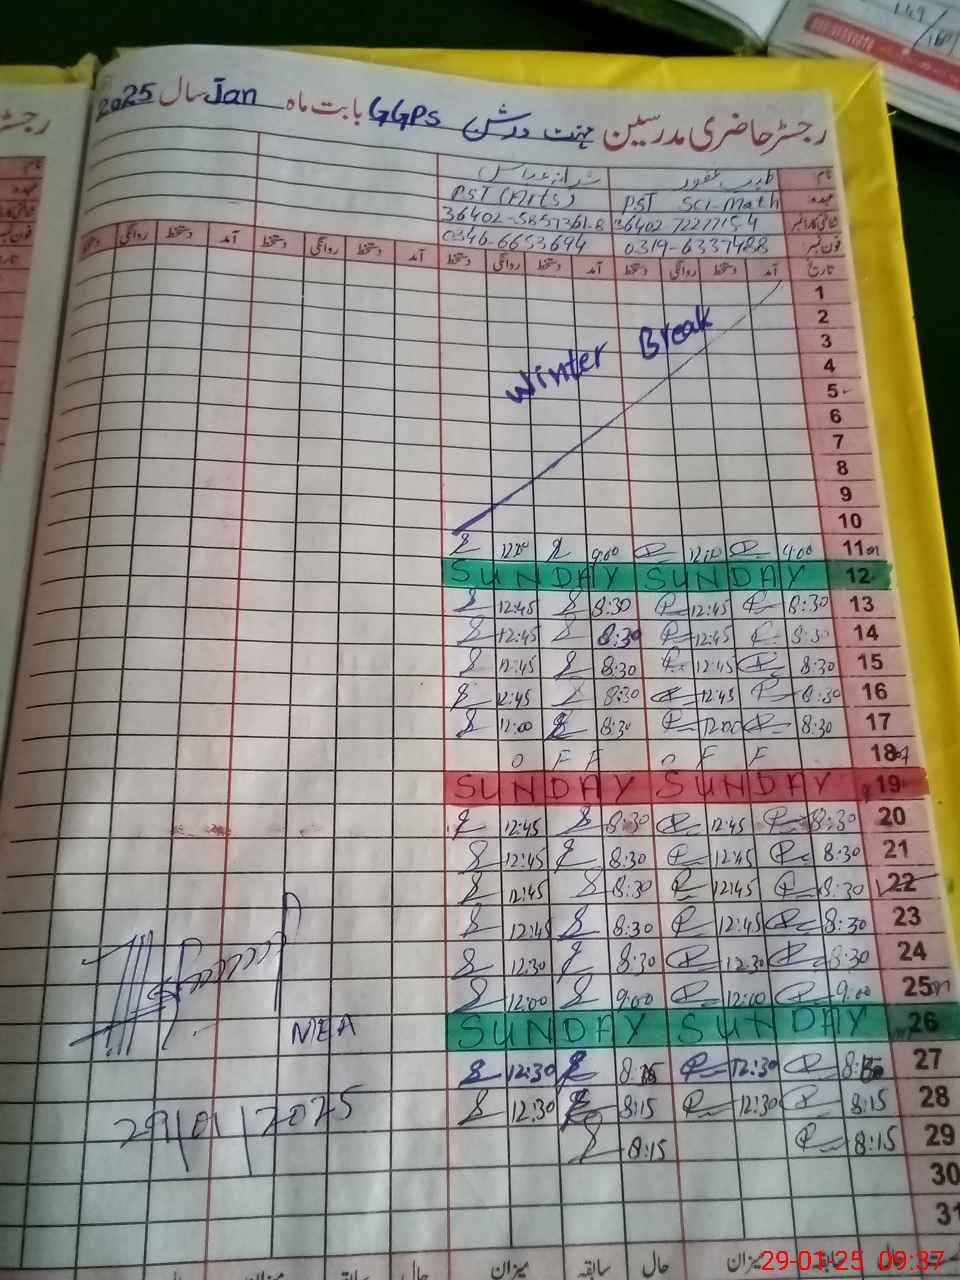 رجسٹر حاضری مدرسین GGPS بابت ماہ Jan سال 2025
نام
عہدہ PST Sci-Math PST (Arts)
36402-5857361-8
فون نمبر: 0319-6337488 0346-6653694
تاریخ آمد دستخط روانگی دستخط آمد دستخط روانگی دستخط آمد دستخط روانگی دستخط آمد دستخط روانگی دستخط
1
2
3
Winter Break
4
5
6
7
8
9
10
12:00 9:00 12:00 9:00 11
SUNDAY SUNDAY 12
12:45 8:30 12:45 8:30 13
12:45 8:30 12:45 8:30 14
12:45 8:30 12:45 8:30 15
12:45 8:30 12:45 8:30 16
12:00 8:30 12:00 8:30 17
OFF OFF 18
SUNDAY SUNDAY 19
12:45 8:30 12:45 8:30 20
12:45 8:30 12:45 8:30 21
12:45 8:30 12:45 8:30 22
12:45 8:30 12:45 8:30 23
12:30 8:30 12:30 8:30 24
12:00 9:00 12:00 9:00 25
SUNDAY SUNDAY 26
NEA
12:30 12:30 27
12:30 8:15 12:30 8:15 28
29/01/2025
8:15 8:15 29
30
31
میزان سابقہ حال میزان سابقہ حال
29-01-25 09:37